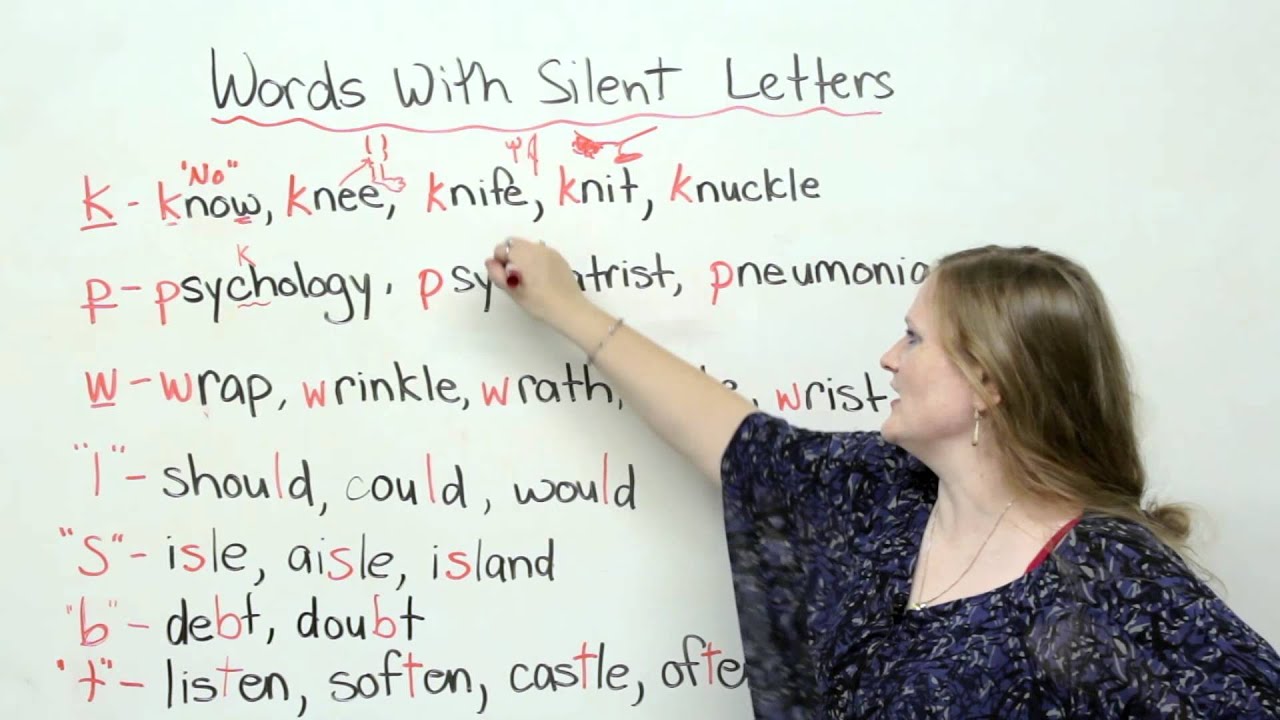 Words With Silent Letters
"No"
k - know, knee, knife, knit, knuckle
K
p - psychology, pneumonia
w - wrap, wrinkle, wrath, wrist
"l" - should, could, would
"S" - isle, aisle, island
"b" - debt, doubt
"t" - listen, soften, castle,